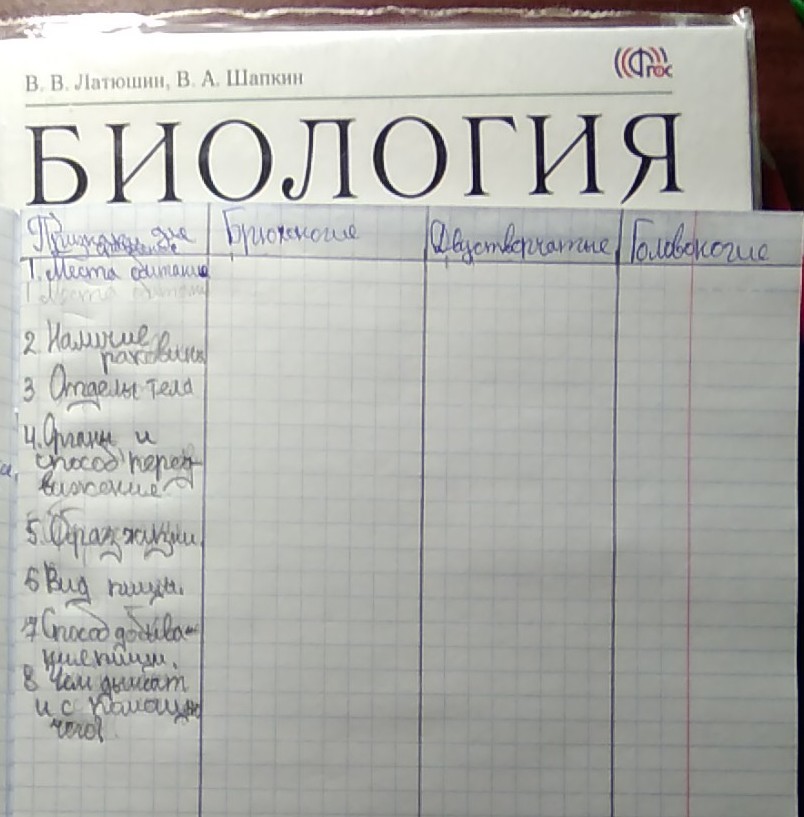 В. В. Латюшин, В. А. Шапкин
ФГОС
БИОЛОГИЯ
Признаки для Брюхоногие Двустворчатые Головоногие
1. Места обитание
1. Места обитание
2 Наличие
раковины
3 Отделы тела
4. Органы и
способ перед-
вижение
5. Образ жизни.
6 Вид пищи.
7 Способ добыва-
ние пищи.
8 Чем дышат
и с помощью
чего?